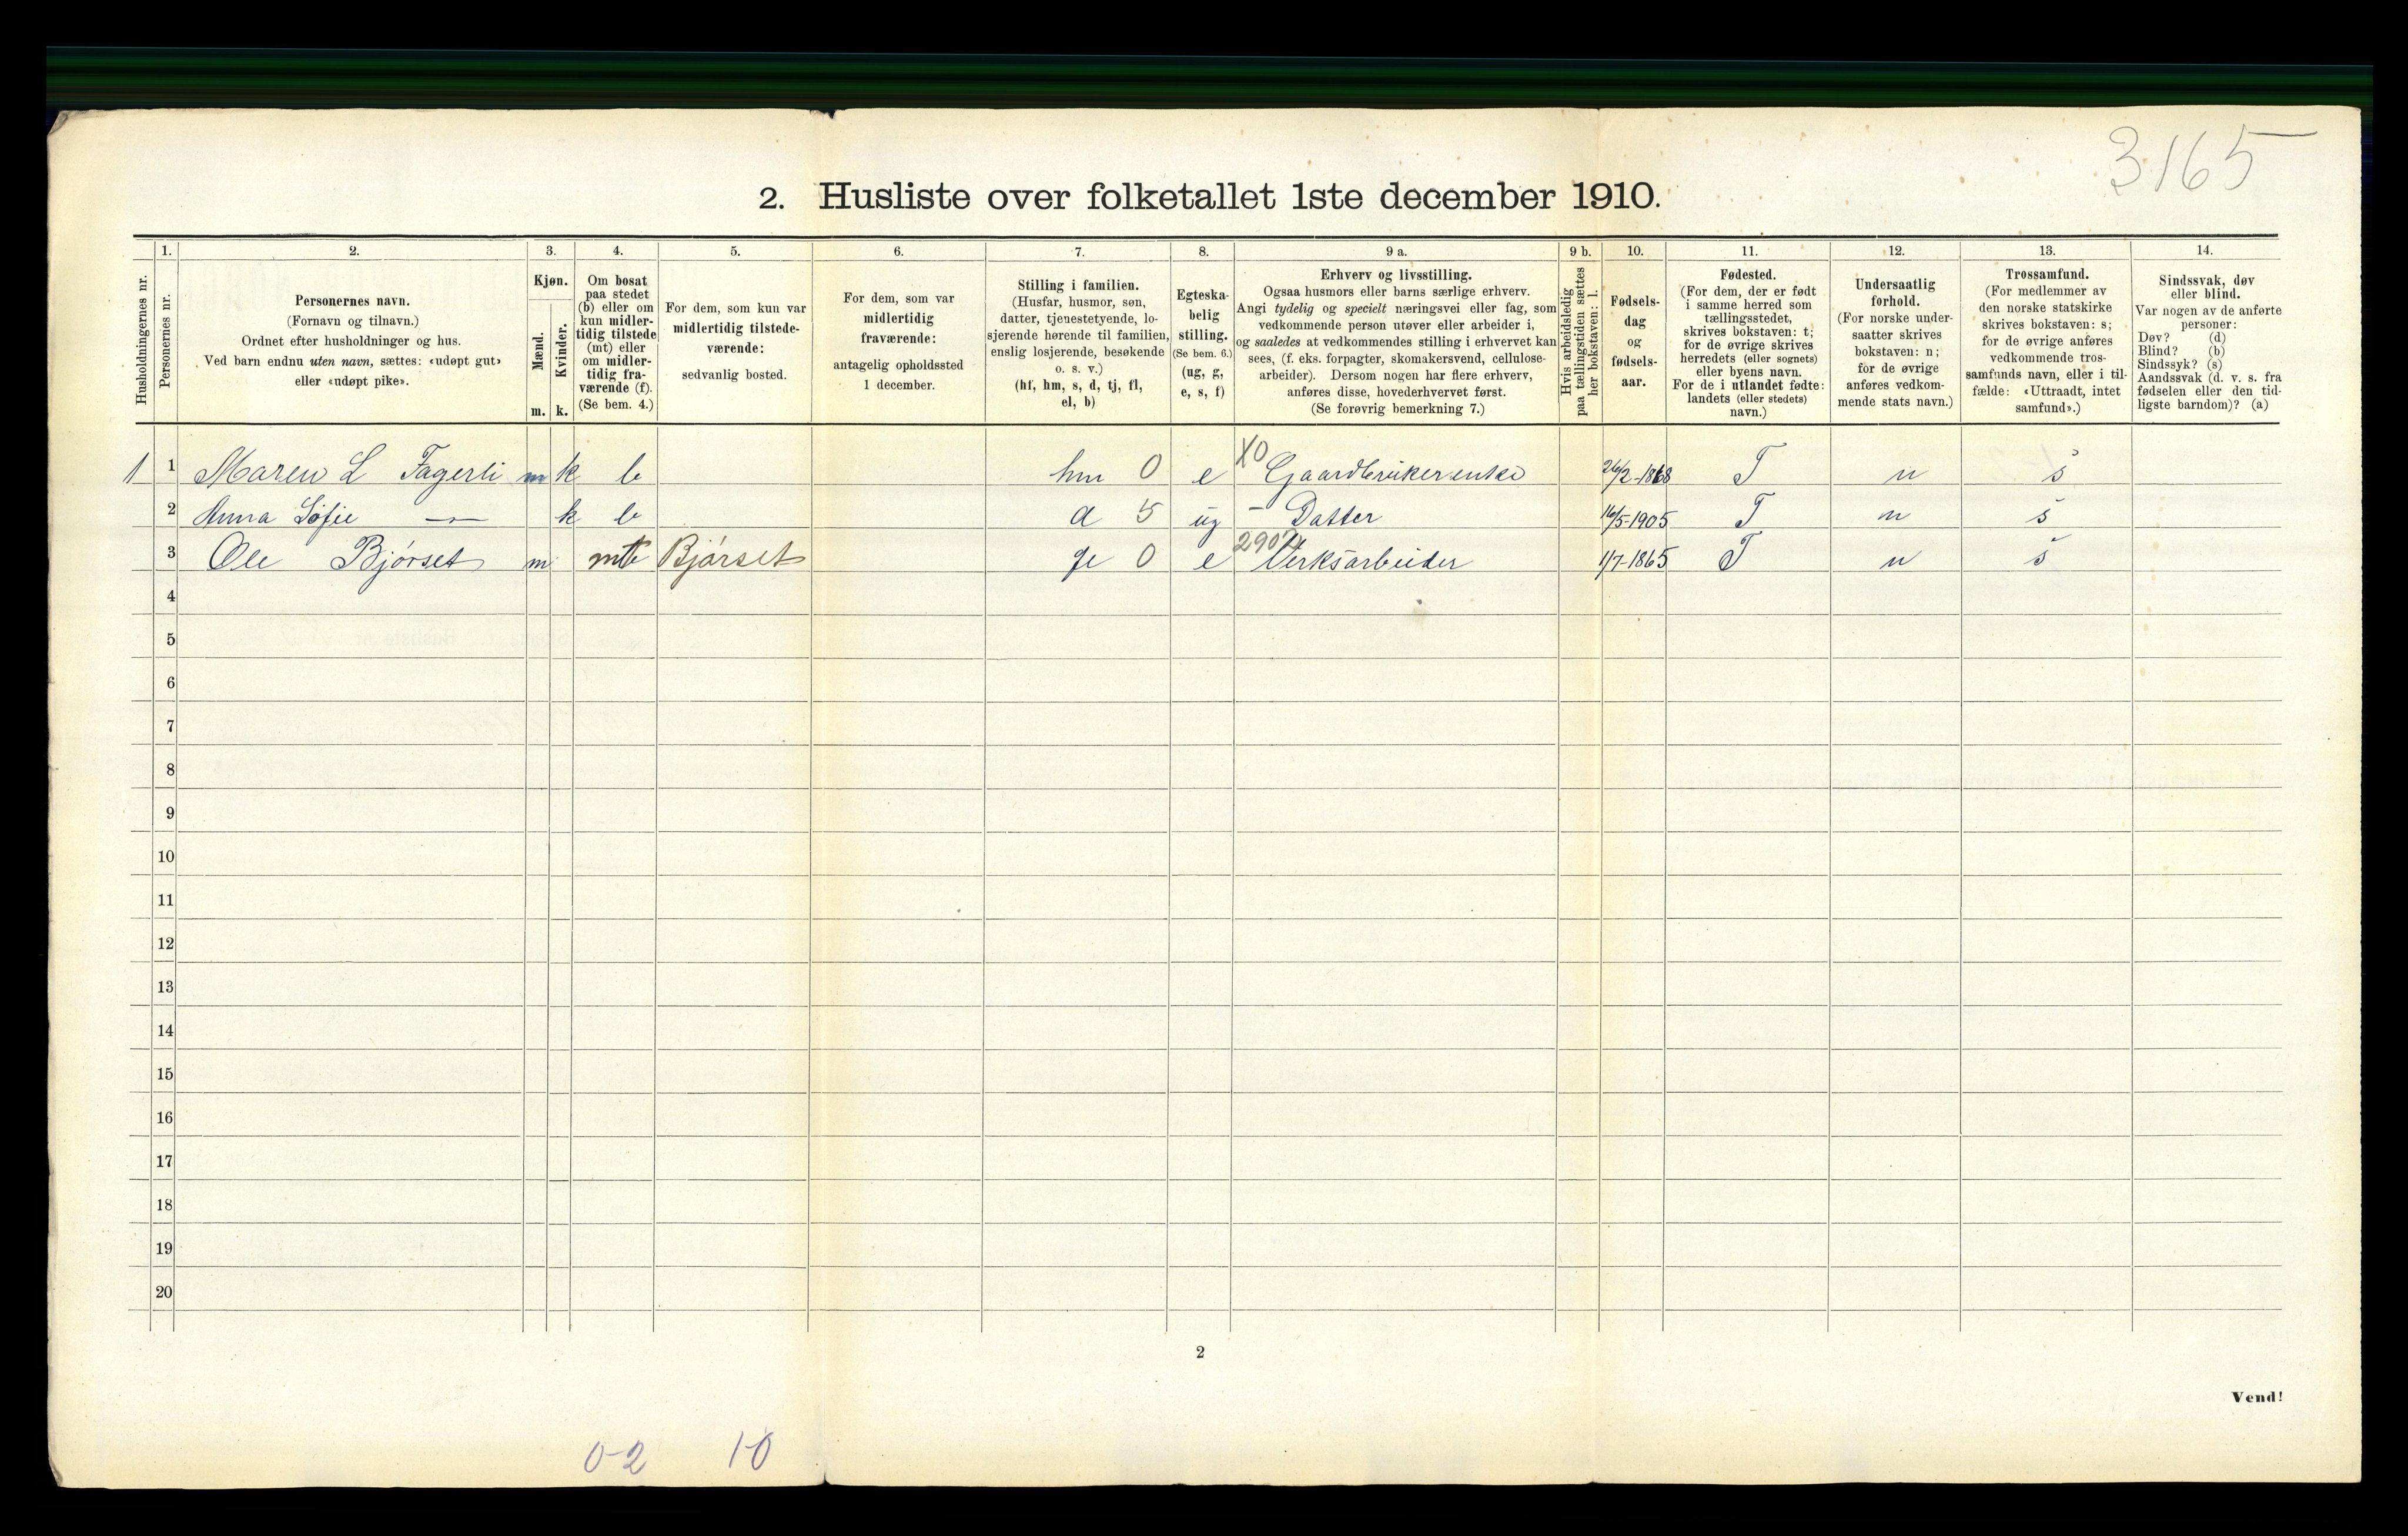 3165
2. Husliste over folketallet 1ste december 1910.
Husholdningernes nr.
1.
Personernes nr.
2.
Personernes navn.
(Fornavn og tilnavn.)
Ordnet efter husholdninger og hus.
Ved barn endnu uten navn, sættes: «udøpt gut»
eller «udøpt pike».
3.
Kjøn.
Mænd.
m.
Kvinder.
k.
4.
Om bosat
paa stedet
(b) eller om
kun midler-
tidig tilstede
(mt) eller
om midler-
tidig fra-
værende (f).
(Se bem. 4.)
5.
For dem, som kun var
midlertidig tilstede-
værende:
sedvanlig bosted.
6.
For dem, som var
midlertidig
fraværende:
antagelig opholdssted
1 december.
7.
Stilling i familien.
(Husfar, husmor, søn,
datter, tjenestetyende, lo-
sjerende hørende til familien,
enslig losjerende, besøkende
o. s. v.)
(hf, hm, s, d, tj, fl,
el, b)
8.
Egteska-
belig
stilling.
(Se bem. 6.)
(ug, g,
e, s, f)
9 a.
Erhverv og livsstilling.
Ogsaa husmors eller barns særlige erhverv.
Angi tydelig og specielt næringsvei eller fag, som
vedkommende person utøver eller arbeider i,
og saaledes at vedkommendes stilling i erhvervet kan
sees, (f. eks. forpagter, skomakersvend, cellulose-
arbeider). Dersom nogen har flere erhverv,
anføres disse, hovederhvervet først.
(Se forøvrig bemerkning 7.)
9 b.
Hvis arbeidsledig
paa tællingstiden sættes
her bokstaven: l.
10.
Fødsels-
dag
og
fødsels-
aar.
11.
Fødested.
(For dem, der er født
i samme herred som
tællingsstedet,
skrives bokstaven: t;
for de øvrige skrives
herredets (eller sognets)
eller byens navn.
For de i utlandet fødte:
landets (eller stedets)
navn.)
12.
Undersaatlig
forhold.
(For norske under-
saatter skrives
bokstaven: n;
for de øvrige
anføres vedkom-
mende stats navn.)
13.
Trossamfund.
(For medlemmer av
den norske statskirke
skrives bokstaven: s;
for de øvrige anføres
vedkommende tros-
samfunds navn, eller i til-
fælde: «Uttraadt, intet
samfund».)
14.
Sindssvak, døv
eller blind.
Var nogen av de anførte
personer:
Døv? (d)
Blind? (b)
Sindssyk? (s)
Aandssvak (d. v. s. fra
fødselen eller den tid-
ligste barndom)? (a)
X0
1 1 Maren L Fagerli m k b hm 0 e Gaardbrukerenke 26/2-1868 T n s
2 Anna Sofie — k b d 5 ug - Datter 16/5-1905 T n s
3 Ole Bjørset m mt Bjørset 0 e Verksarbeider 1/7-1865 T n s
4
5
6
7
8
9
10
11
12
13
14
15
16
17
18
19
20
2
Vend!
0-2 1-0